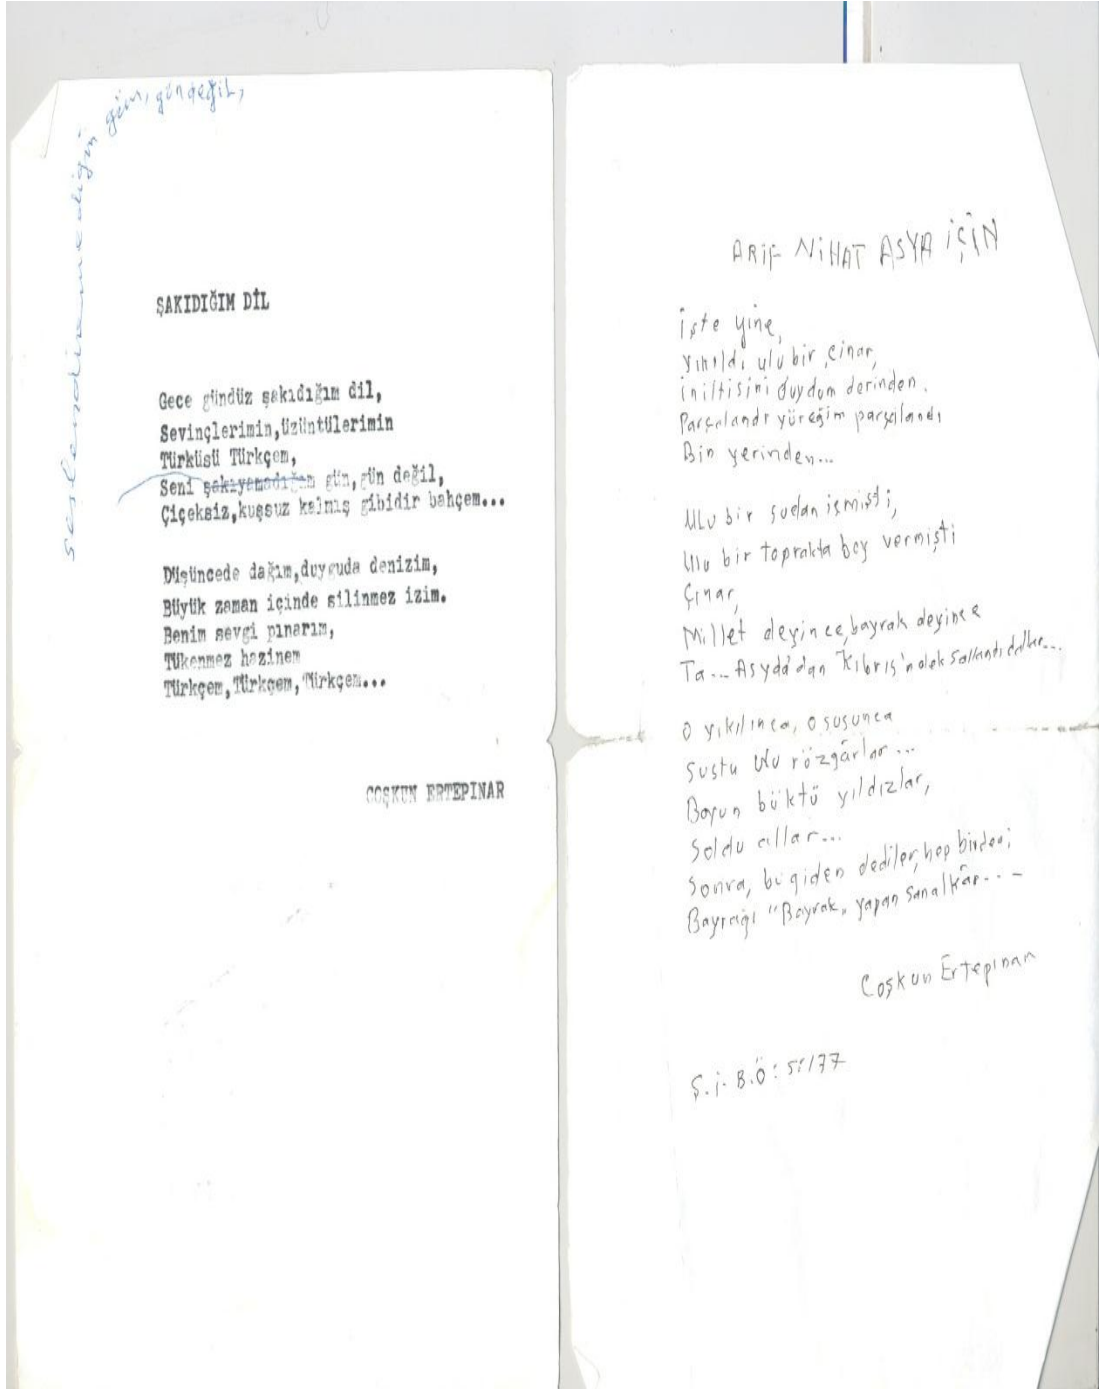 seslendiremediğin gün, gün değil,
ŞAKIDIĞIM DİL
Gece gündüz şakıdığım dil,
Sevinçlerimin,üzüntülerimin
Türküsü Türkçem,
Seni şakıyamadığım gün,gün değil,
Çiçeksiz,kuşsuz kalmış gibidir bahçem...
Düşüncede dağım,duyguda denizim,
Büyük zaman içinde silinmez izim.
Benim sevgi pınarım,
Tükenmez hazinem
Türkçem,Türkçem,Türkçem...
COŞKUN ERTEPINAR
ARİF NİHAT ASYA İÇİN
İşte yine,
Yıkıldı ulu bir çınar,
İniltisini duydum derinden.
Parçalandı yüreğim parçalandı
Bin yerinden...
Ulu bir sudan içmişti,
Ulu bir toprakta boy vermişti
Çınar,
Millet deyince, bayrak deyince
Ta... Asya'dan Kıbrıs'a dek sallandı dallar...
O yıkılınca, o susunca
Sustu ulu rüzgârlar...
Boyun büktü yıldızlar,
Soldu allar...
Sonra, bu giden dediler, hep birden;
Bayrağı "Bayrak" yapan sanatkâr...
Coşkun Ertepınar
Ş.İ. B.Ö: 51/77